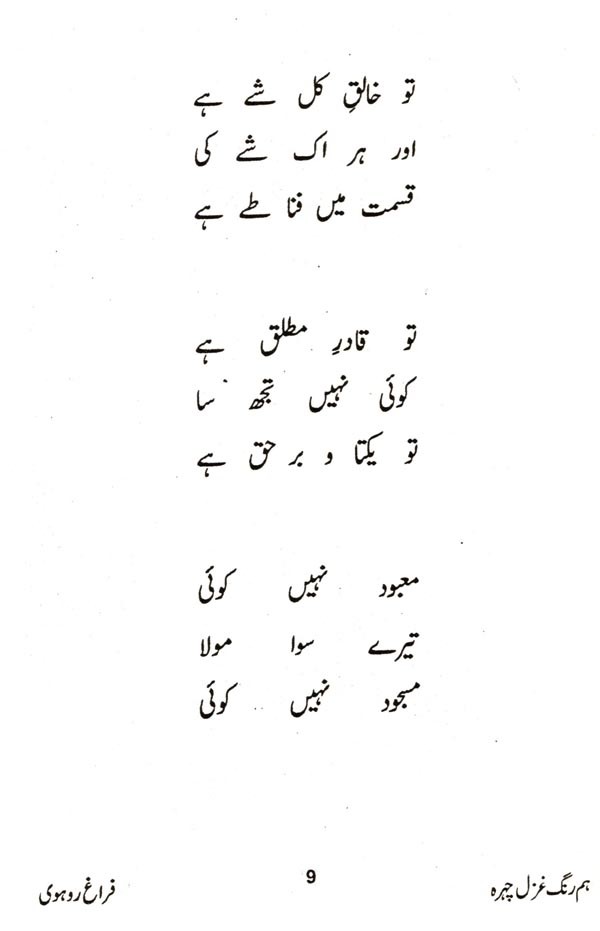 تو خالقِ کل شے ہے
اور ہر اک شے کی
قسمت میں فنا طے ہے
تو قادرِ مطلق ہے
کوئی نہیں تجھ سا
تو یکتا و بر حق ہے
معبود نہیں کوئی
تیرے سوا مولا
مسجود نہیں کوئی
ہم رنگ غزل چہرہ 9 فراغ روہوی